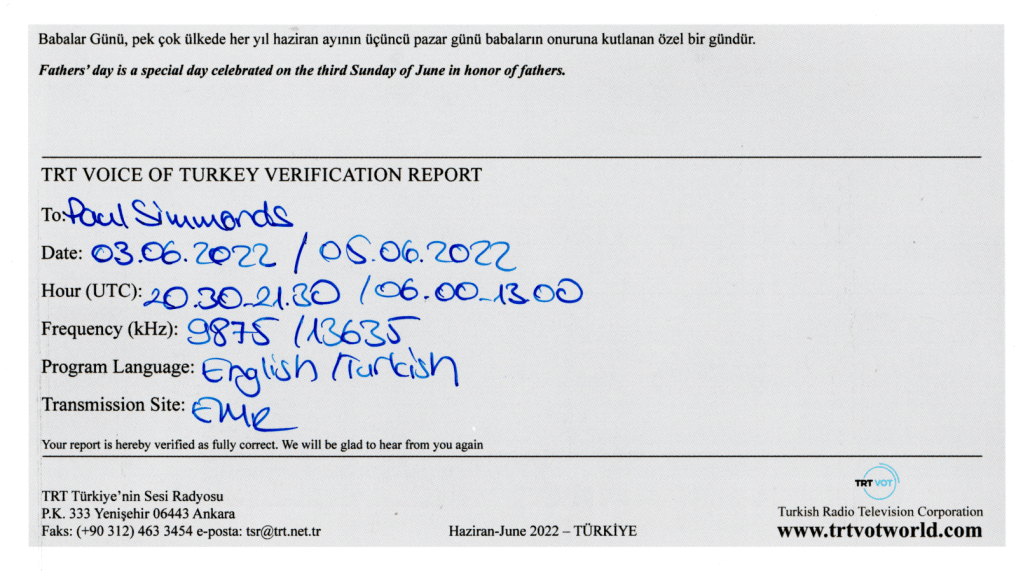 Babalar Günü, pek çok ülkede her yıl haziran ayının üçüncü pazar günü babaların onuruna kutlanan özel bir gündür.
Fathers' day is a special day celebrated on the third Sunday of June in honor of fathers.
TRT VOICE OF TURKEY VERIFICATION REPORT
To: Paul Simmonds
Date: 03.06.2022 / 05.06.2022
Hour (UTC): 20.30-21.30 / 06.00-13.00
Frequency (kHz): 9875 / 13635
Program Language: English / Turkish
Transmission Site: EMR
Your report is hereby verified as fully correct. We will be glad to hear from you again
TRT VOT
TRT Türkiye'nin Sesi Radyosu
P.K. 333 Yenişehir 06443 Ankara
Faks: (+90 312) 463 3454 e-posta: tsr@trt.net.tr
Haziran-June 2022 – TÜRKİYE
Turkish Radio Television Corporation
www.trtvotworld.com